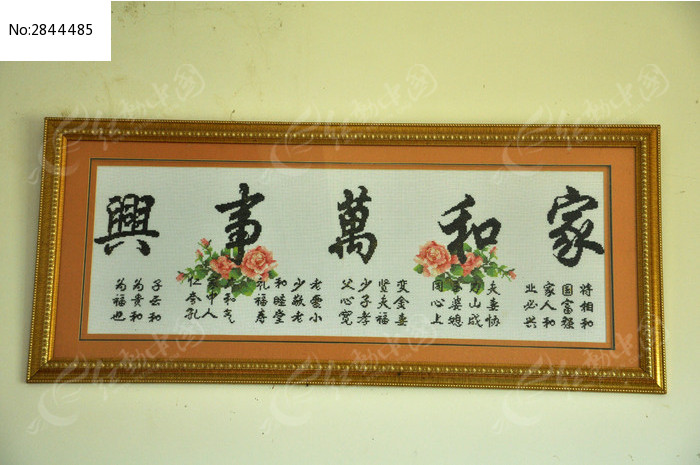 No:2844485
家和萬事興
将相和
国富强
家人和
业必兴
夫妻协
力山成
玉
婆媳
同心土
变金妻
贤夫福
少子孝
父心宽
老爱小
少敬老
和睦堂
礼福寿
和气
家中人
仁奉孔
子云和
为贵和
为福也